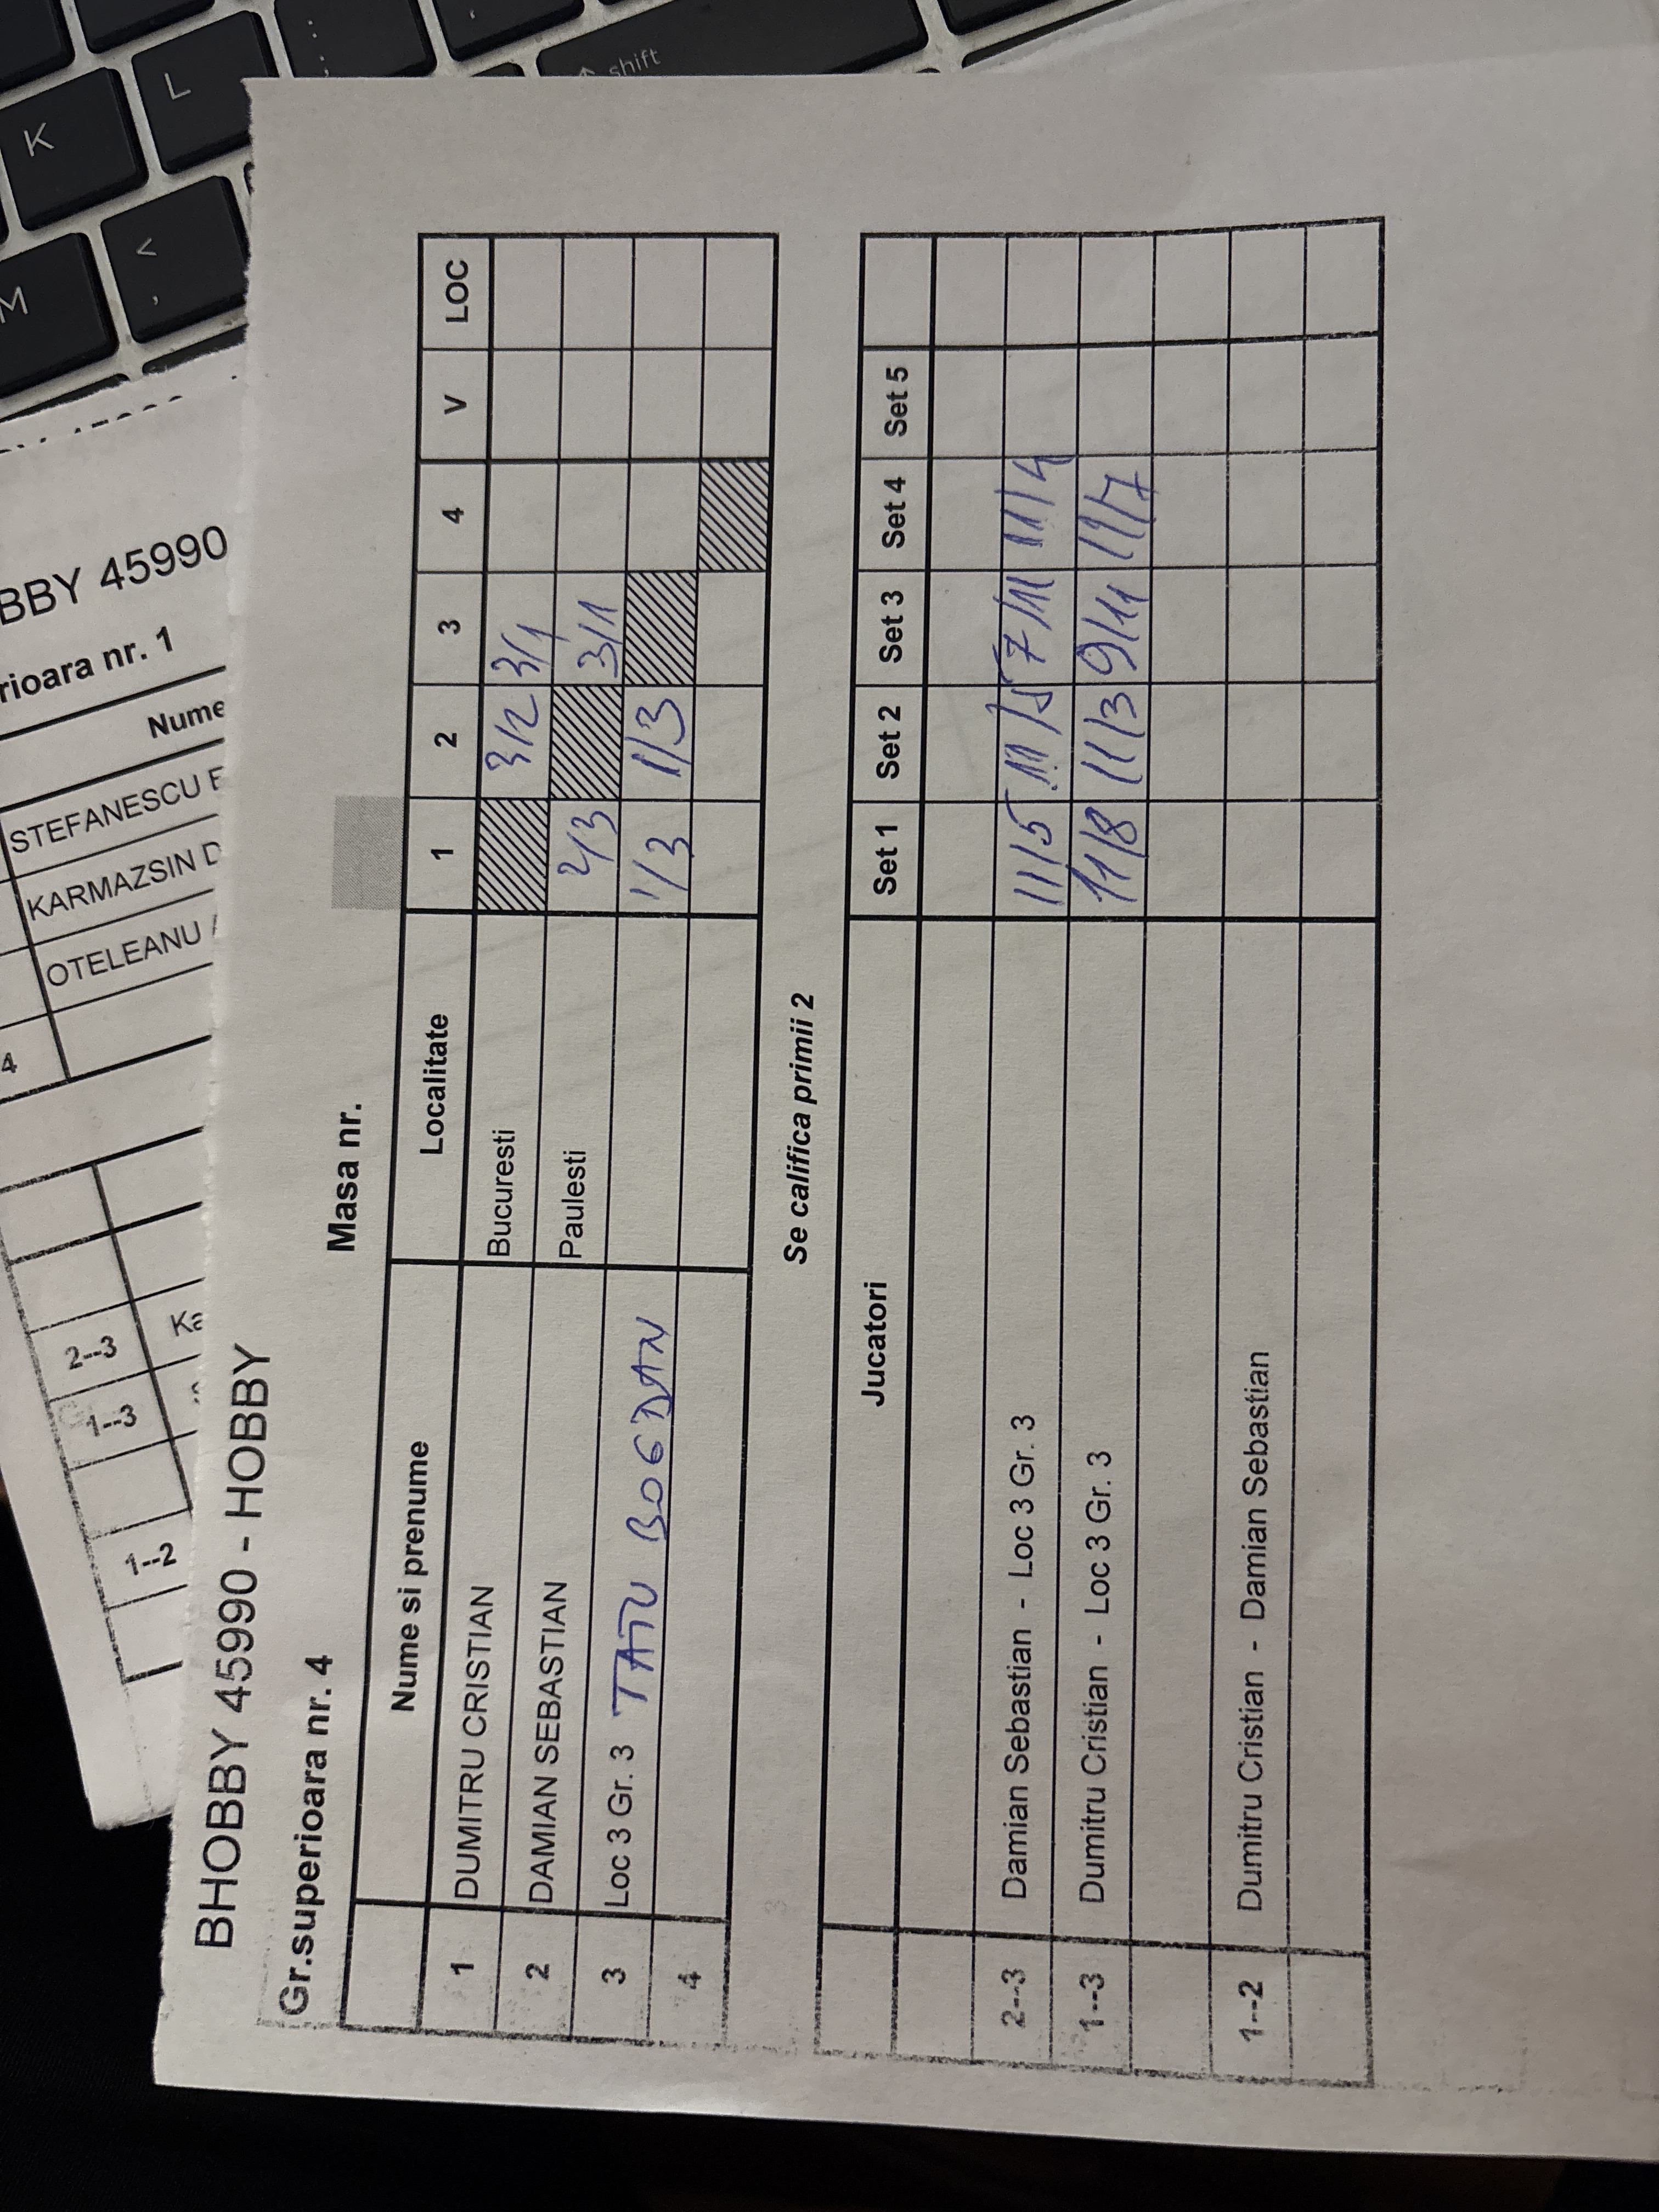 K
L
shift
M
<
,
BBY 45990
rioara nr. 1
Nume
STEFANESCU E
KARMAZSIN D
OTELEANU
4
2--3 Ka
1--3
1--2
BHOBBY 45990 - HOBBY
Gr.superioara nr. 4 Masa nr.
Nume si prenume Localitate 1 2 3 4 V LOC
1 DUMITRU CRISTIAN Bucuresti 3/2 3/1
2 DAMIAN SEBASTIAN Paulesti 2/3 3/1
3 Loc 3 Gr. 3 TATU BOGDAN 1/3 1/3
4
Se califica primii 2
Jucatori Set 1 Set 2 Set 3 Set 4 Set 5
2--3 Damian Sebastian - Loc 3 Gr. 3 11/5 11/5 7/11 11/4
1--3 Dumitru Cristian - Loc 3 Gr. 3 11/8 11/3 9/11 11/7
1--2 Dumitru Cristian - Damian Sebastian